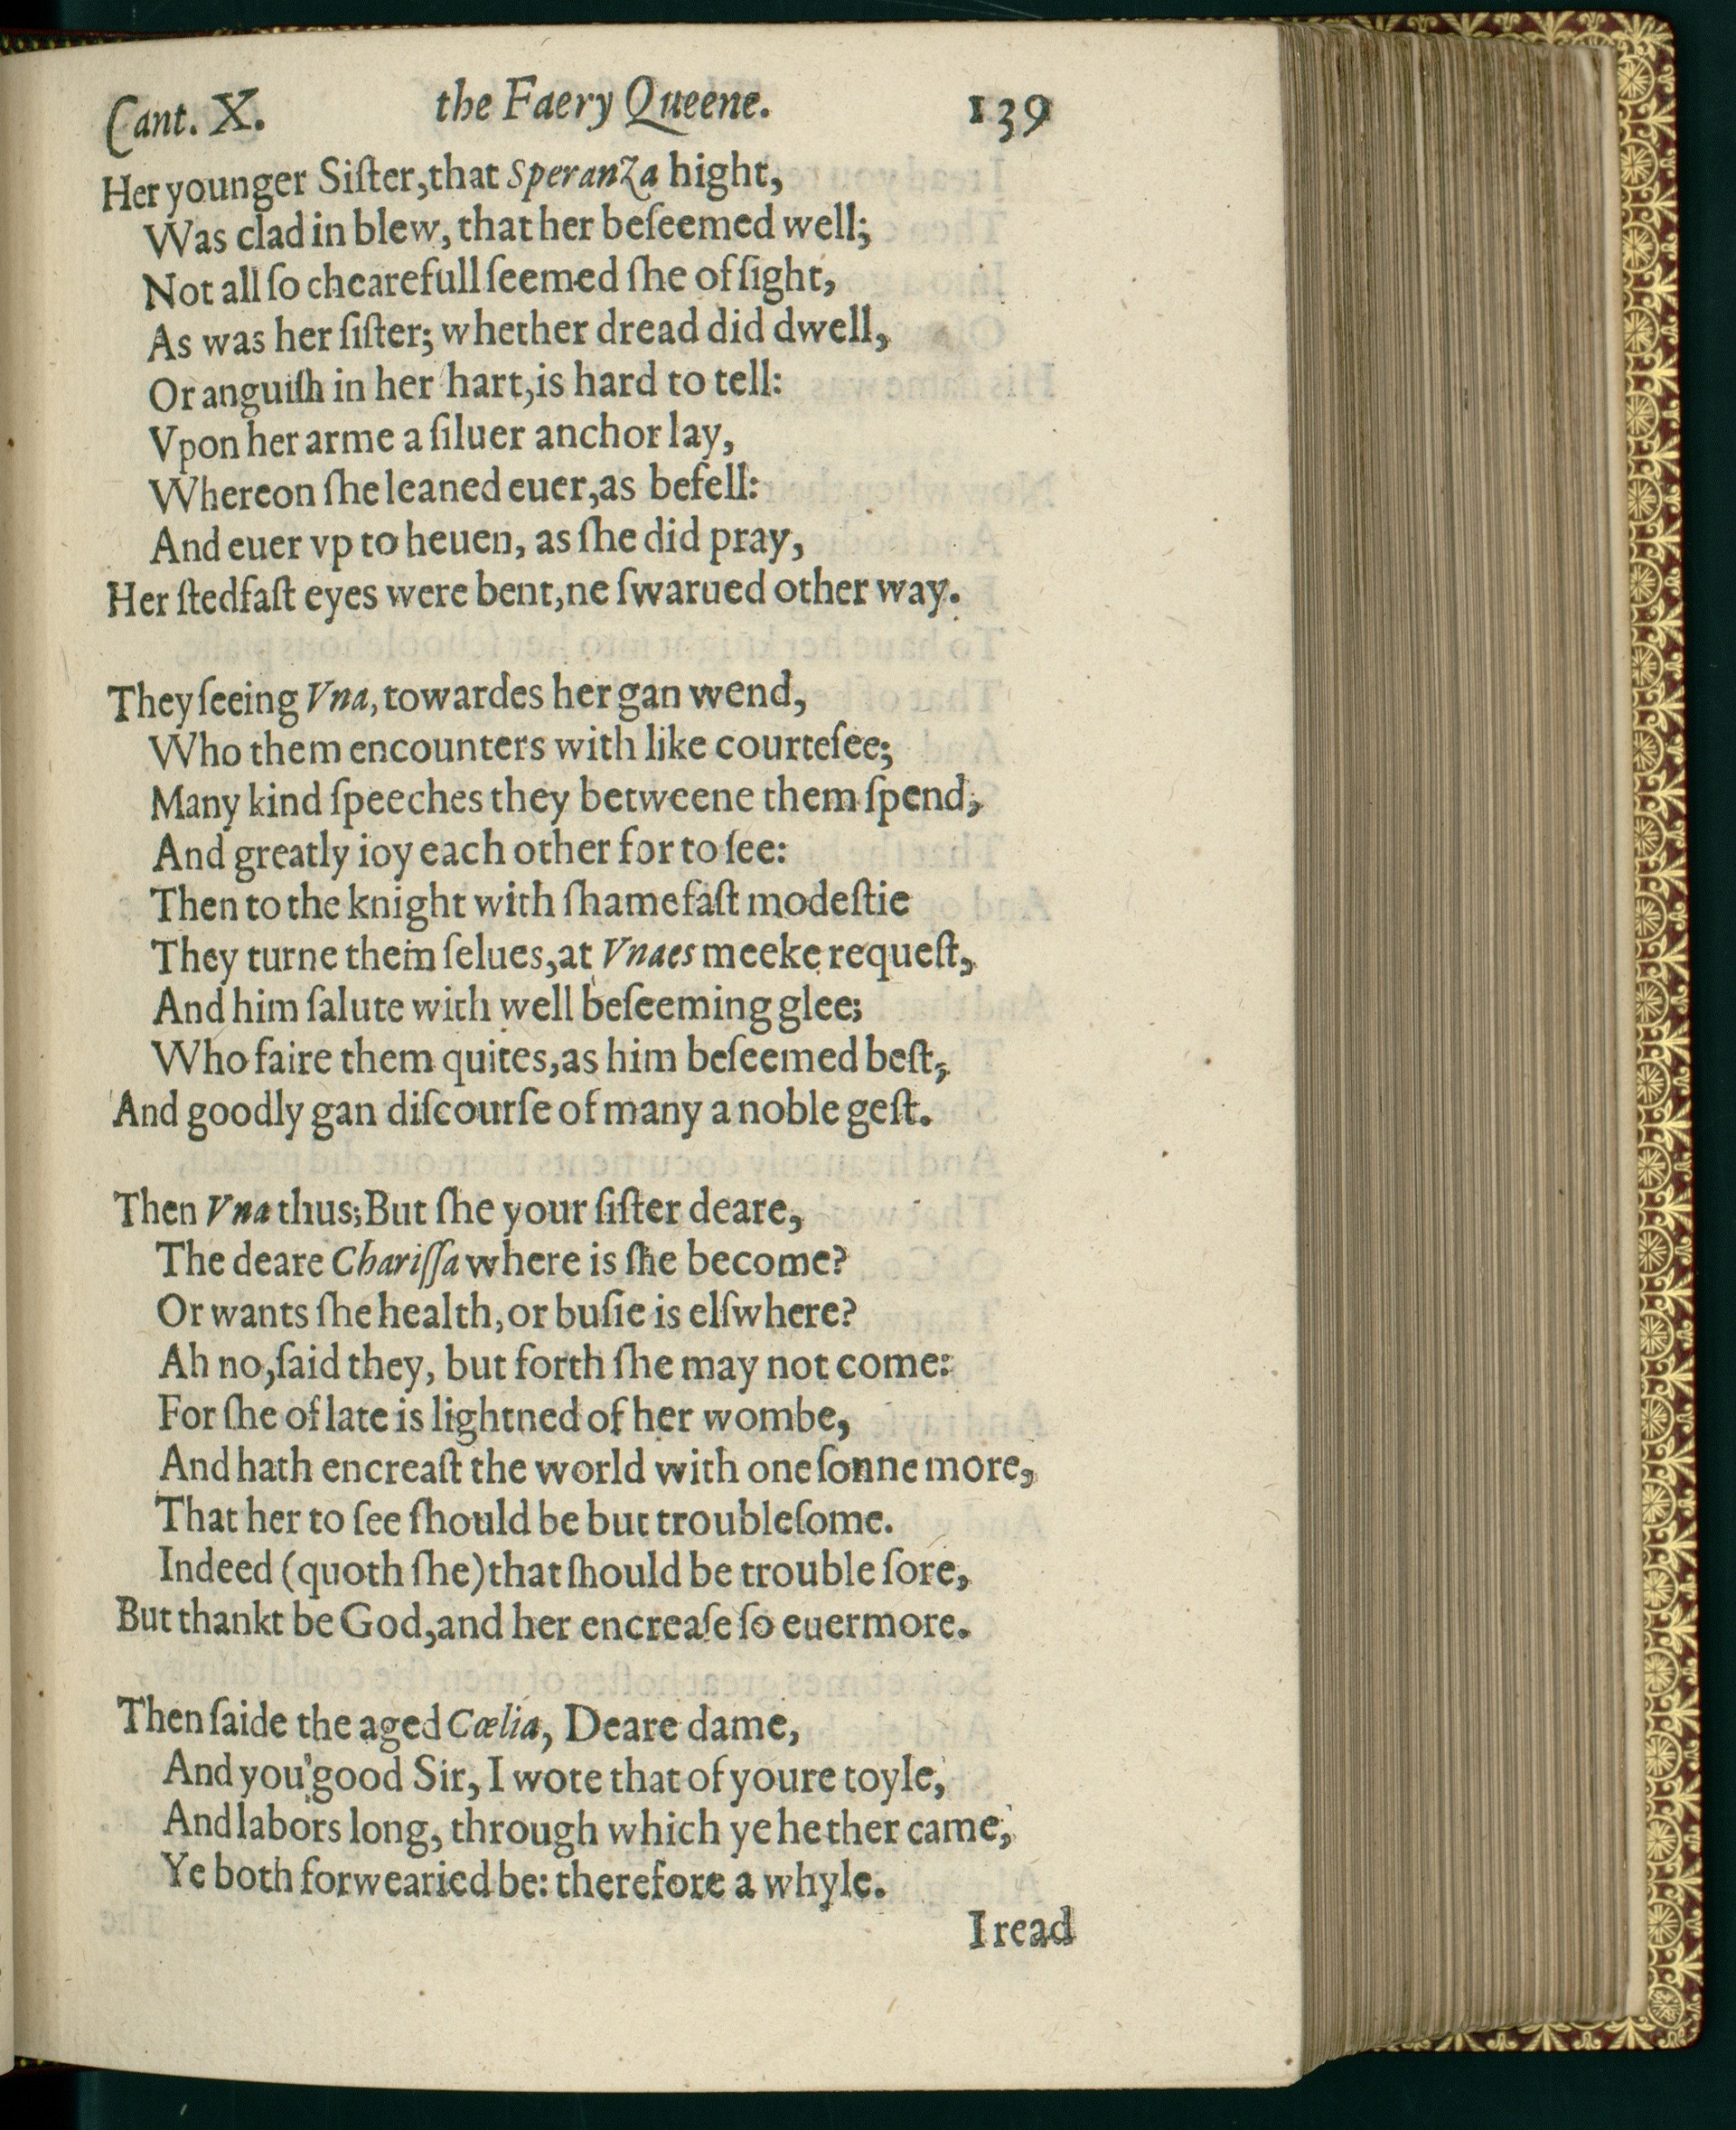 Cant. X. the Faery Queene. 139
Her younger Siſter, that Speranza hight,
Was clad in blew, that her beſeemed well;
Not all ſo chearefull ſeemed ſhe of ſight,
As was her ſiſter; whether dread did dwell,
Or anguiſh in her hart, is hard to tell:
Vpon her arme a ſiluer anchor lay,
Whereon ſhe leaned euer, as befell:
And euer vp to heuen, as ſhe did pray,
Her ſtedfaſt eyes were bent, ne ſwarued other way.
They ſeeing Vna, towardes her gan wend,
Who them encounters with like courteſee;
Many kind ſpeeches they betweene them ſpend,
And greatly ioy each other for to ſee:
Then to the knight with ſhamefaſt modeſtie
They turne them ſelues, at Vnaes meeke requeſt,
And him ſalute with well beſeeming glee;
Who faire them quites, as him beſeemed beſt,
And goodly gan diſcourſe of many a noble geſt.
Then Vna thus; But ſhe your ſiſter deare,
The deare Chariſſa where is ſhe become?
Or wants ſhe health, or buſie is elſwhere?
Ah no, ſaid they, but forth ſhe may not come:
For ſhe of late is lightned of her wombe,
And hath encreaſt the world with one ſonne more,
That her to ſee ſhould be but troubleſome.
Indeed (quoth ſhe) that ſhould be trouble ſore,
But thankt be God, and her encreaſe ſo euermore.
Then ſaide the aged Cœlia, Deare dame,
And you good Sir, I wote that of youre toyle,
And labors long, through which ye hether came,
Ye both forwearied be: therefore a whyle.
I read